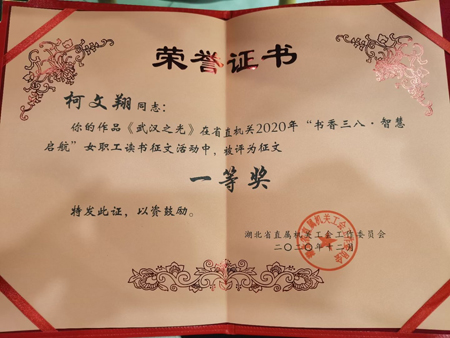 荣誉证书
柯文翔同志：
你的作品《武汉之光》在省直机关2020年“书香三八·智慧
启航”女职工读书征文活动中，被评为征文
一等奖
特发此证，以资鼓励。
湖北省直属机关工会工作委员会
二〇二〇年十二月